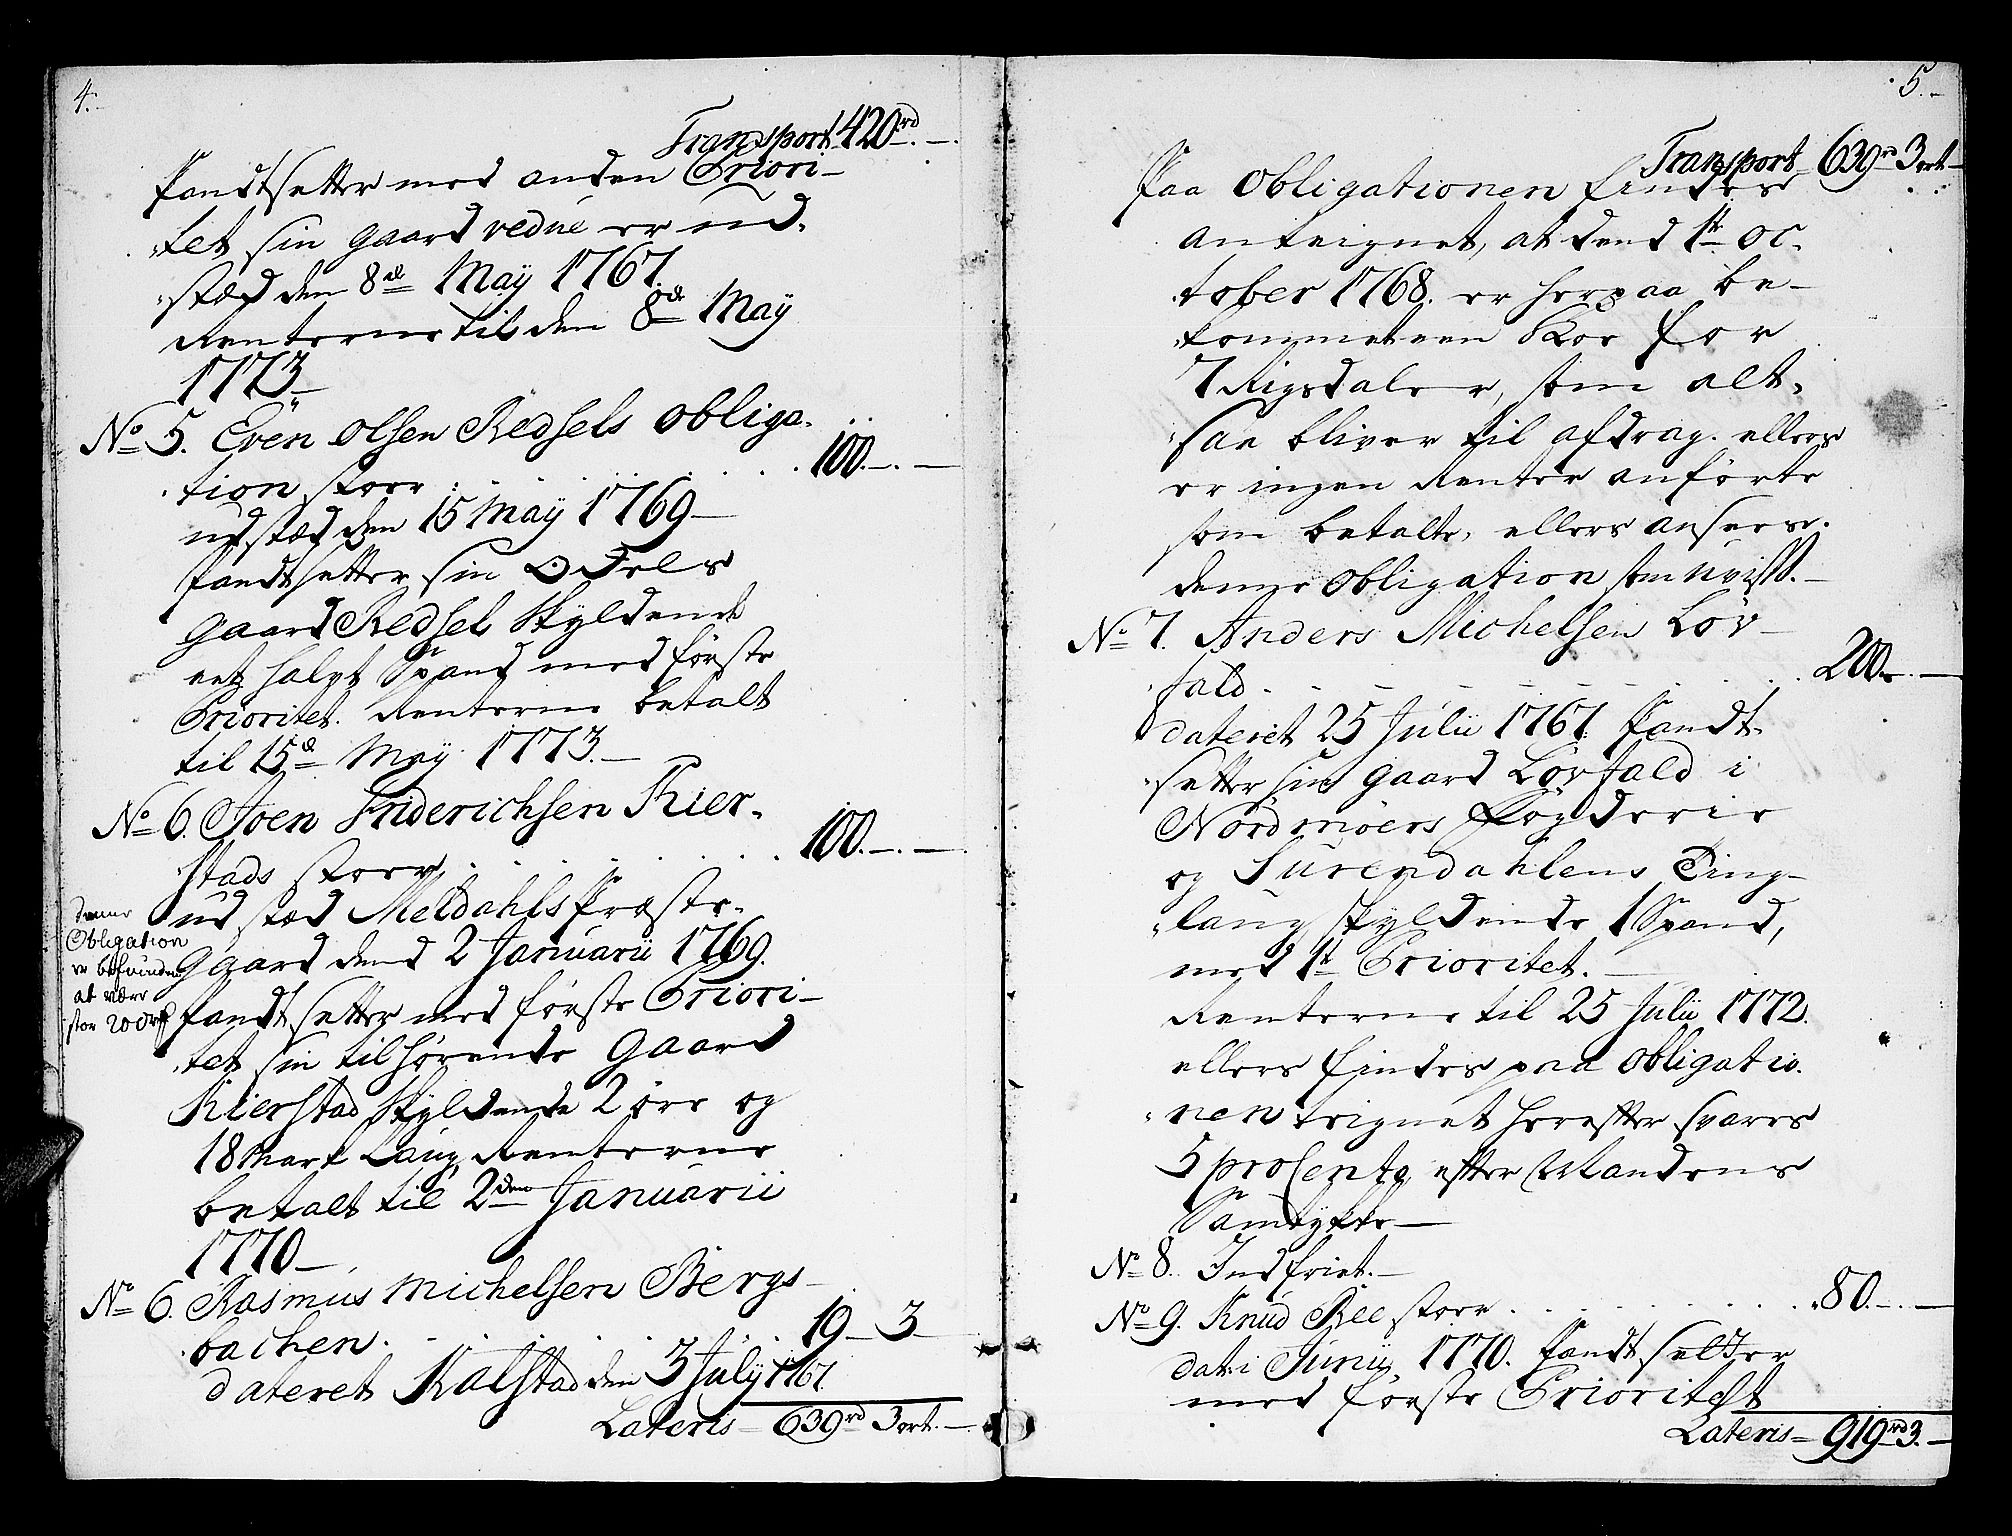 4.
Transport 420rd. -.
Pandtsetter med anden Priori-
tet sin gaard vedue er ud-
stæd den 8de May 1767.
Renterne til den 8de May
1773 -
No 5. Even Olsen Redsels obliga-
tion stoer . . . . . . 100. -. -
udstæd den 15 May 1769 -
Pandtsetter sin Odels
gaard Redsel Skyldende
eet halvt Spand med første
Prioritet. Renterne betalt
til 15de May 1773. -
No 6. Joen Friderichsen Kier-
stads stoer . . . . . . 100. -. -
udstæd Meldahls Præste-
gaard dend 2 Januarii 1769.
Pandtsetter med første Priori-
tet sin tilhørende Gaard
Kierstad Skyldende 2 øre og
18 Mark Laug Renterne
betalt til 2den Januarii
1770 -
denne
Obligation
er befunden
at være
stor 200 rd
No 6. Rasmus Michelsen Bergs-
bachen . . . . . 19 - 3 -
dateret Kalstad den 3 July 1767.
Lateris = 639rd 3 ort. -
5. -
Transport 639rd 3 ort -
Paa Obligationen findes
anteignet, at dend 1te oc-
tober 1768. er herpaa be-
kommet een Koe for
7 Rigsdaler, som alt-
saa bliver til afdrag. ellers
er ingen Renter anførte
som betalte, ellers ansees.
denne Obligation som uviss. -
No 7. Anders Michelsen Löv-
fald . . . . . . 200. -. -
dateret 25 Julii 1767. Pandt-
setter sin gaard Lövfald i
Nordmöers Fögderie
og Surendahlens Ting-
laug skyldende 1 Spand,
med 1te Prioritet. -
Renterne til 25 Julii 1772.
ellers findes paa Obligatio-
nen teignet herefter svares
5 proCento efter Mandens
Samtykke -
No 8. Indfriet. -
No 9. Knud Ree stoer . . . . . . 80. -. -
dat: i Junii 1770. Pandtsetter
med første Prioritet
Lateris = 919rd 3. -